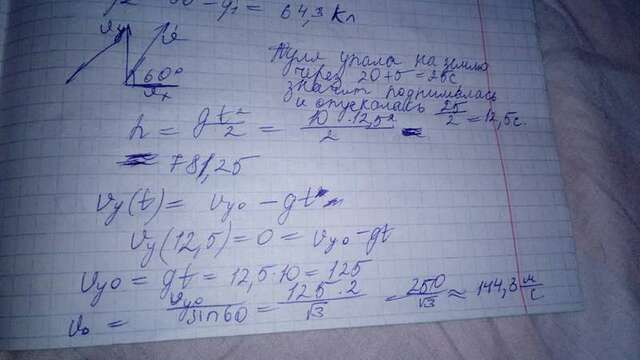 y₂ = 60 - y₁ = 64,3 Кл
Vy
V
60°
Vx
Пуля упала на землю
через 20+5=25с
значит поднималась
и опускалась 25/2 = 12,5с.
h = gt²/2 = 10·12,5²/2 =
= 781,25
Vy(t) = Vy0 - gt
Vy(12,5) = 0 = Vy0 - gt
Vy0 = gt = 12,5·10 = 125
V0 = Vy0/sin60 = 125·2/√3 = 250/√3 ≈ 144,3 м/с